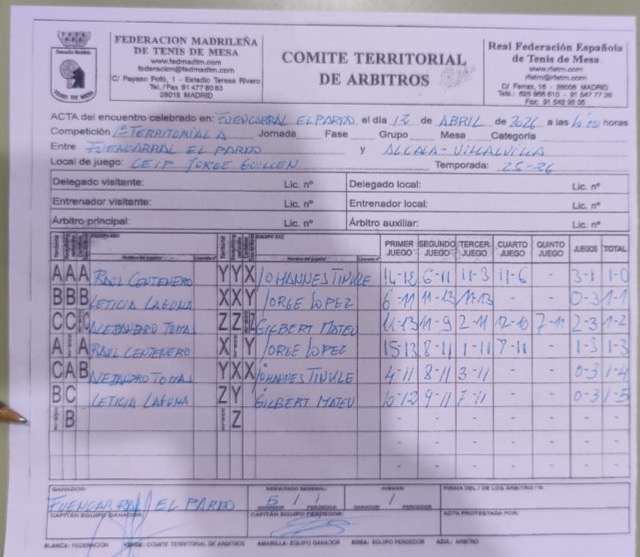 FEDERACION MADRILEÑA
DE TENIS DE MESA
www.fedmadtm.com
federacion@fedmadtm.com
C/ Payaso Fofó, 1 - Estadio Teresa Rivero
Tel./Fax 91 477 80 83
28018 MADRID
COMITE TERRITORIAL
DE ARBITROS
Real Federación Española
de Tenis de Mesa
www.rfetm.com
ACTA del encuentro celebrado en: FUENCARRAL EL PARDO el día de ABRIL de 2026 a las horas
Competición 1ª TERRITORIAL A Jornada Fase Grupo Mesa Categoría
Entre FUENCARRAL EL PARDO y ALCALA-VILLALVILLA
Local de juego: CEIP JORGE GUILLEN Temporada: 25-26
Delegado visitante: Lic. nº Delegado local: Lic. nº
Entrenador visitante: Lic. nº Entrenador local: Lic. nº
Árbitro principal: Lic. nº Árbitro auxiliar: Lic. nº
PRIMER JUEGO SEGUNDO JUEGO TERCER. JUEGO CUARTO JUEGO QUINTO JUEGO JUEGOS TOTAL
A A A RAUL CENTENERO Y Y X JOHANNES TINKLE 6-11 11-3 11-6 - 3-1 1-0
B B B LETICIA LAGUNA X X Y JORGE LOPEZ 6-11 11-13 11-13 - - 0-3 1-1
C C ALEJANDRO TOMAS Z Z GILBERT MATEU 11-13 11-9 2-11 12-10 7-11 2-3 1-2
A A RAUL CENTENERO X Y JORGE LOPEZ 15-13 8-11 1-11 7-11 - 1-3 1-3
C A B ALEJANDRO TOMAS Y X X JOHANNES TINKLE 4-11 8-11 3-11 - - 0-3 1-4
B C LETICIA LAGUNA Z Y GILBERT MATEU 10-12 9-11 7-11 - - 0-3 1-5
B Z
GANADOR: RESULTADO GENERAL: JUEGOS: FIRMA DEL / DE LOS ÁRBITRO / S:
FUENCARRAL EL PARDO 5 / 1 /
GANADOR PERDEDOR GANADOR PERDEDOR
CAPITÁN EQUIPO GANADOR CAPITÁN EQUIPO PERDEDOR ACTA PROTESTADA POR:
BLANCA: FEDERACIÓN VERDE: COMITE TERRITORIAL DE ARBITROS AMARILLA: EQUIPO GANADOR ROSA: EQUIPO PERDEDOR AZUL: ARBITRO